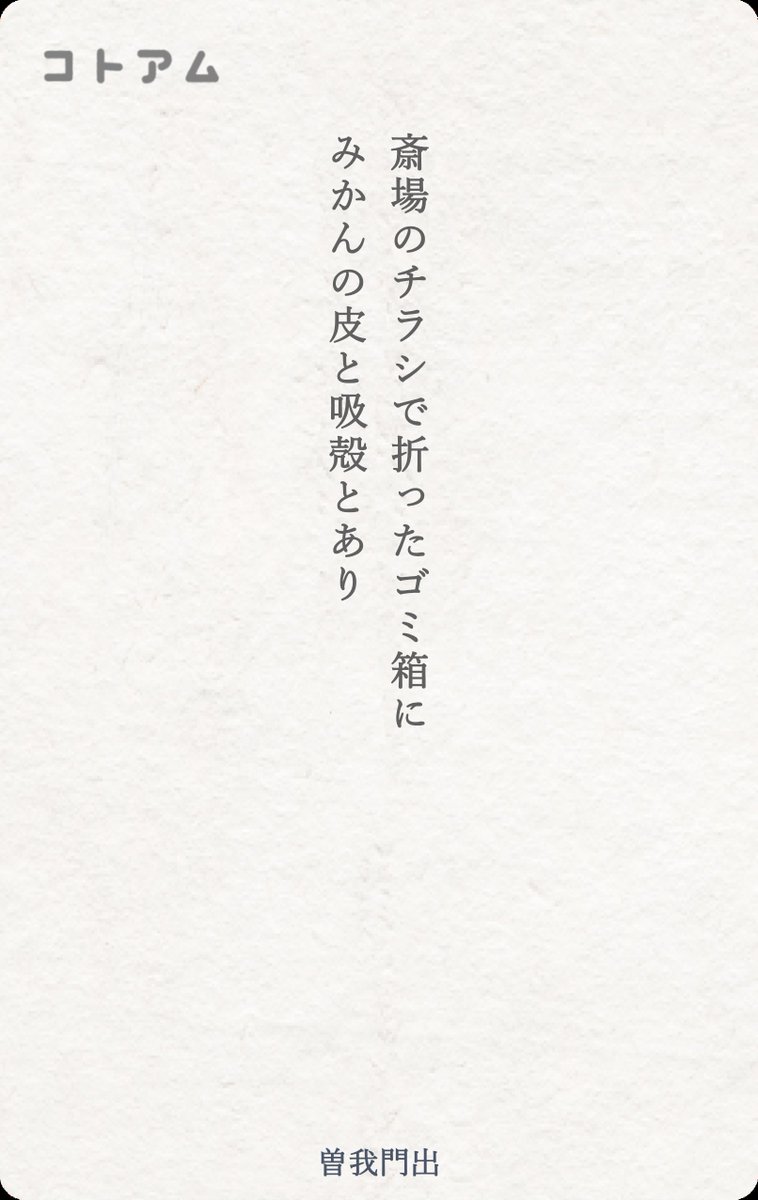 コトアム
斎場のチラシで折ったゴミ箱に
みかんの皮と吸殻とあり
曽我門出